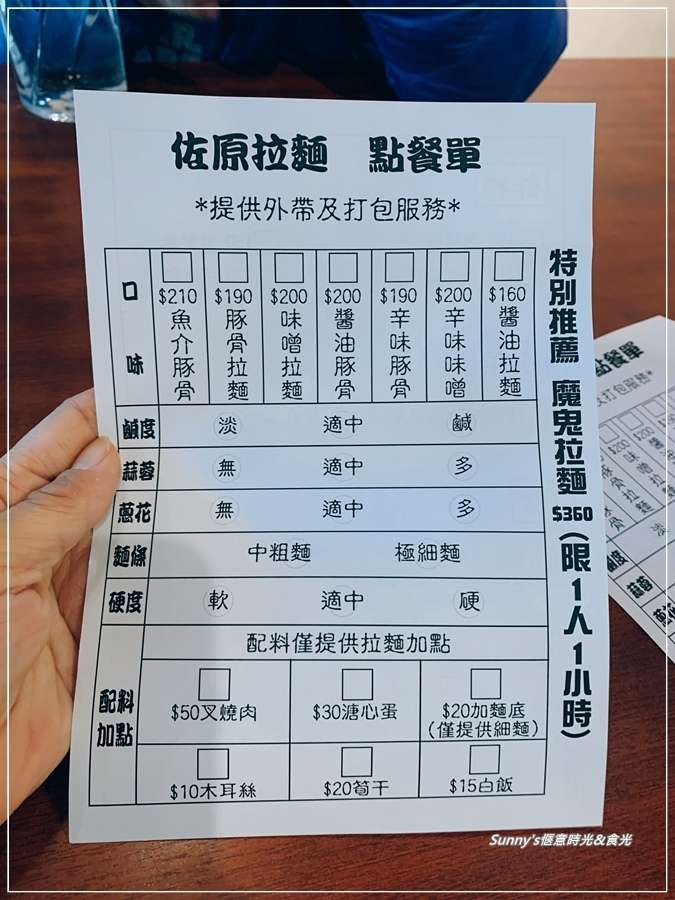 佐原拉麵 點餐單
*提供外帶及打包服務*
口味
$210 魚介豚骨
$190 豚骨拉麵
$200 味噌拉麵
$200 醬油豚骨
$190 辛味豚骨
$200 辛味味噌
$160 醬油拉麵
鹹度 淡 適中 鹹
蒜蓉 無 適中 多
蔥花 無 適中 多
麵條 中粗麵 極細麵
硬度 軟 適中 硬
配料僅提供拉麵加點
配料加點
$50叉燒肉 $30溏心蛋 $20加麵底
(僅提供細麵)
$10木耳絲 $20筍干 $15白飯
特別推薦 魔鬼拉麵 $360(限1人1小時)
點餐單
及打包服務*
Sunny's愜意時光&食光